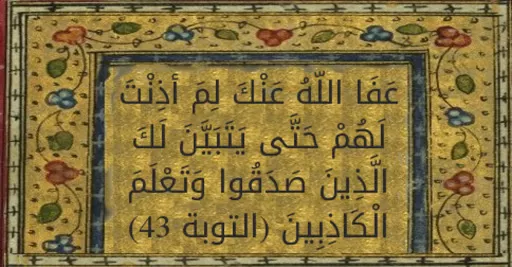 عَفَا اللّهُ عَنْكَ لِمَ أذِنْتَ
لَهُمْ حَتَّى يَتَبَيَّنَ لَكَ
الَّذِينَ صَدَقُوا وَتَعْلَمَ
الْكَاذِبِينَ (التوبة 43)